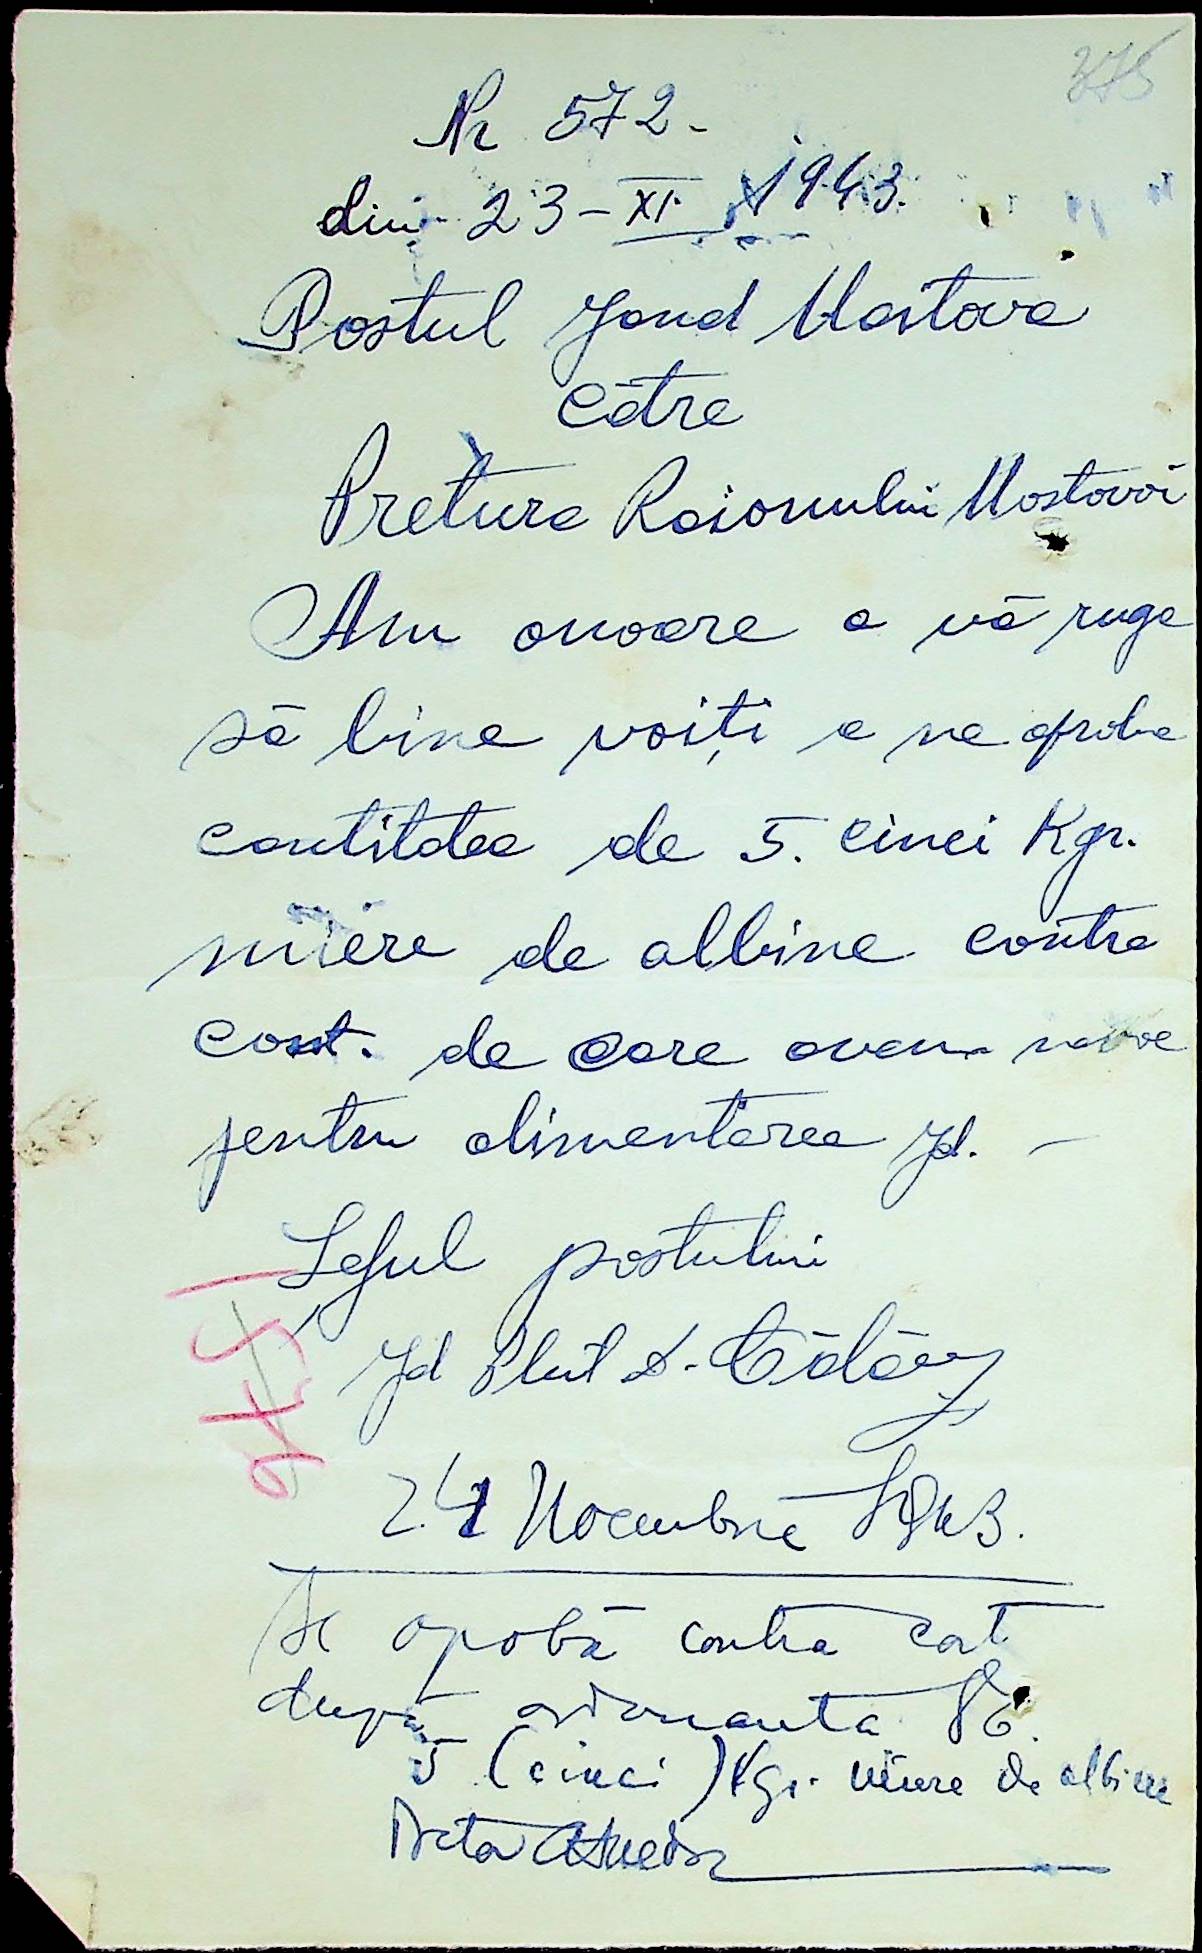 375
Nr 572-
din 23-XI 1943.
Postul Jand Mostova
Cătră
Pretura Raionului Mostovoi
Am onoare a vă ruga
să bine voiți a ne aproba
cantitatea de 5. cinci Kgr.
miere de albine contra
cost. de care avem nevoe
pentru alimentarea Jd. -
Șeful postului
Jd Plut D.
24 Noembrie 1943.
Se aprobă contra cost
după ordonanta
5 (cinci) Kgr. miere de albine